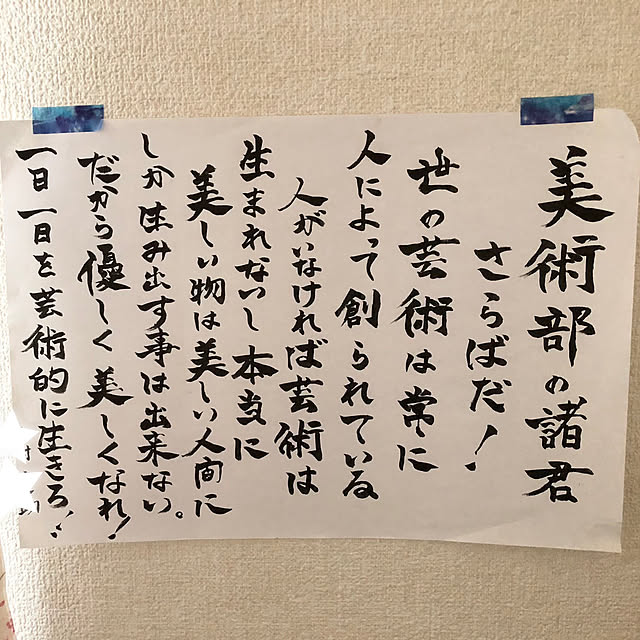 美術部の諸君
さらばだ！
世の芸術は常に
人によって創られている
人がいなければ芸術は
生まれないし本当に
美しい物は美しい人間に
しか生み出す事は出来ない。
だから優しく美しくなれ！
一日一日を芸術的に生きろ！